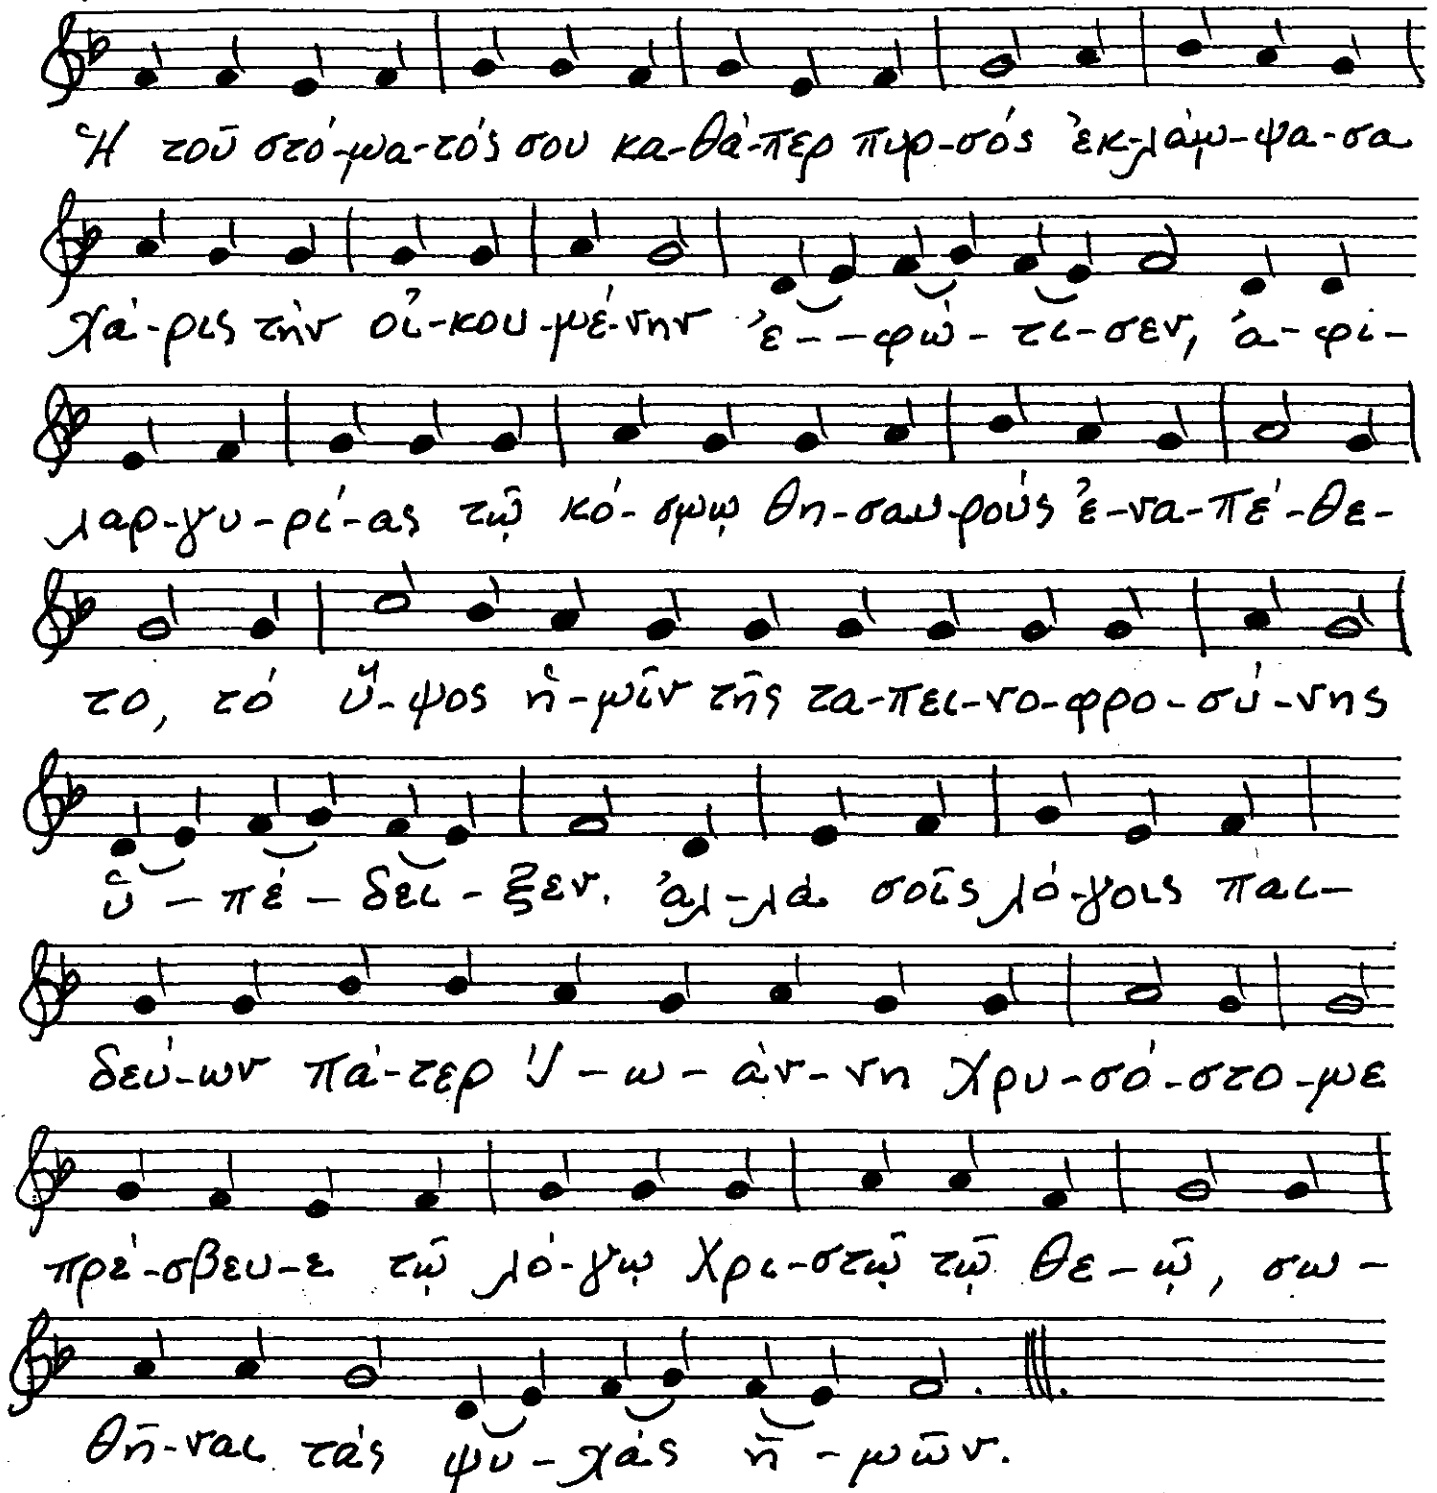 Ἡ τοῦ στό-μα-τός σου κα-θά-περ πυρ-σός ἐκ-λάμ-ψα-σα
χά-ρις τήν οἰ-κου-μέ-νην ἐ--φώ-τι-σεν, ἀ-φι-
λαρ-γυ-ρί-ας τῷ κό-σμῳ θη-σαυ-ρούς ἐ-να-πέ-θε-
το, τό ὕ-ψος ἡ-μῖν τῆς τα-πει-νο-φρο-σύ-νης
ὑ-πέ-δει-ξεν. ἀλ-λά σοῖς λό-γοις παι-
δεύ-ων πά-τερ Ἰ-ω-άν-νη Χρυ-σό-στο-με
πρέ-σβευ-ε τῷ λό-γῳ Χρι-στῷ τῷ Θε-ῷ, σω-
θῆ-ναι τάς ψυ-χάς ἡ-μῶν.